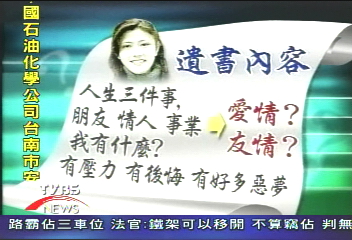 國石油化學公司台南市安
遺書內容
人生三件事,
朋友 情人 事業
我有什麼?
有壓力 有後悔 有好多惡夢
愛情?
友情?
TVBS
NEWS
路霸佔三車位 法官:鐵架可以移開 不算竊佔 判無